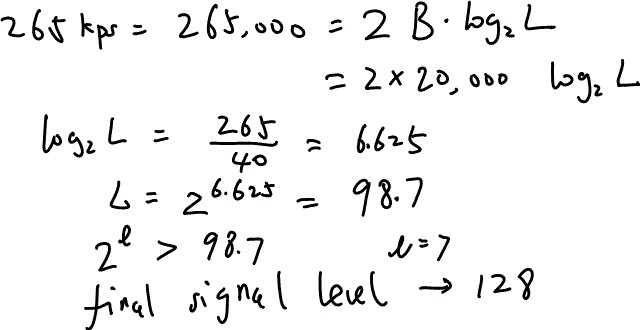 265 kps = 265,000 = 2 B · log₂ L
= 2 × 20,000 log₂ L
log₂ L = 265/40 = 6.625
L = 2^6.625 = 98.7
2^l > 98.7 l=7
final signal level → 128